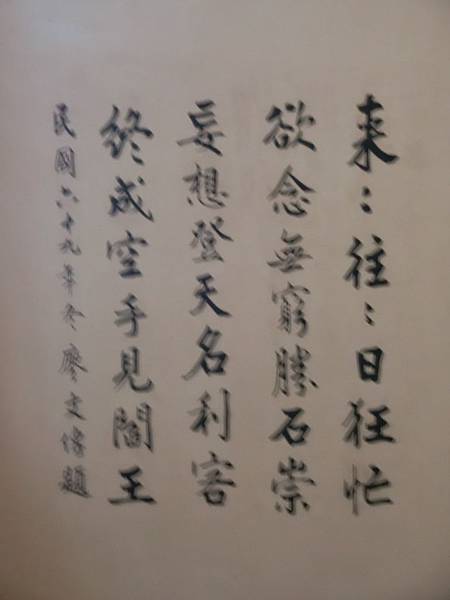 来：往：日狂忙
欲念無窮勝石崇
妄想登天名利客
終成空手見閻王
民國六十九年冬廖文偉題